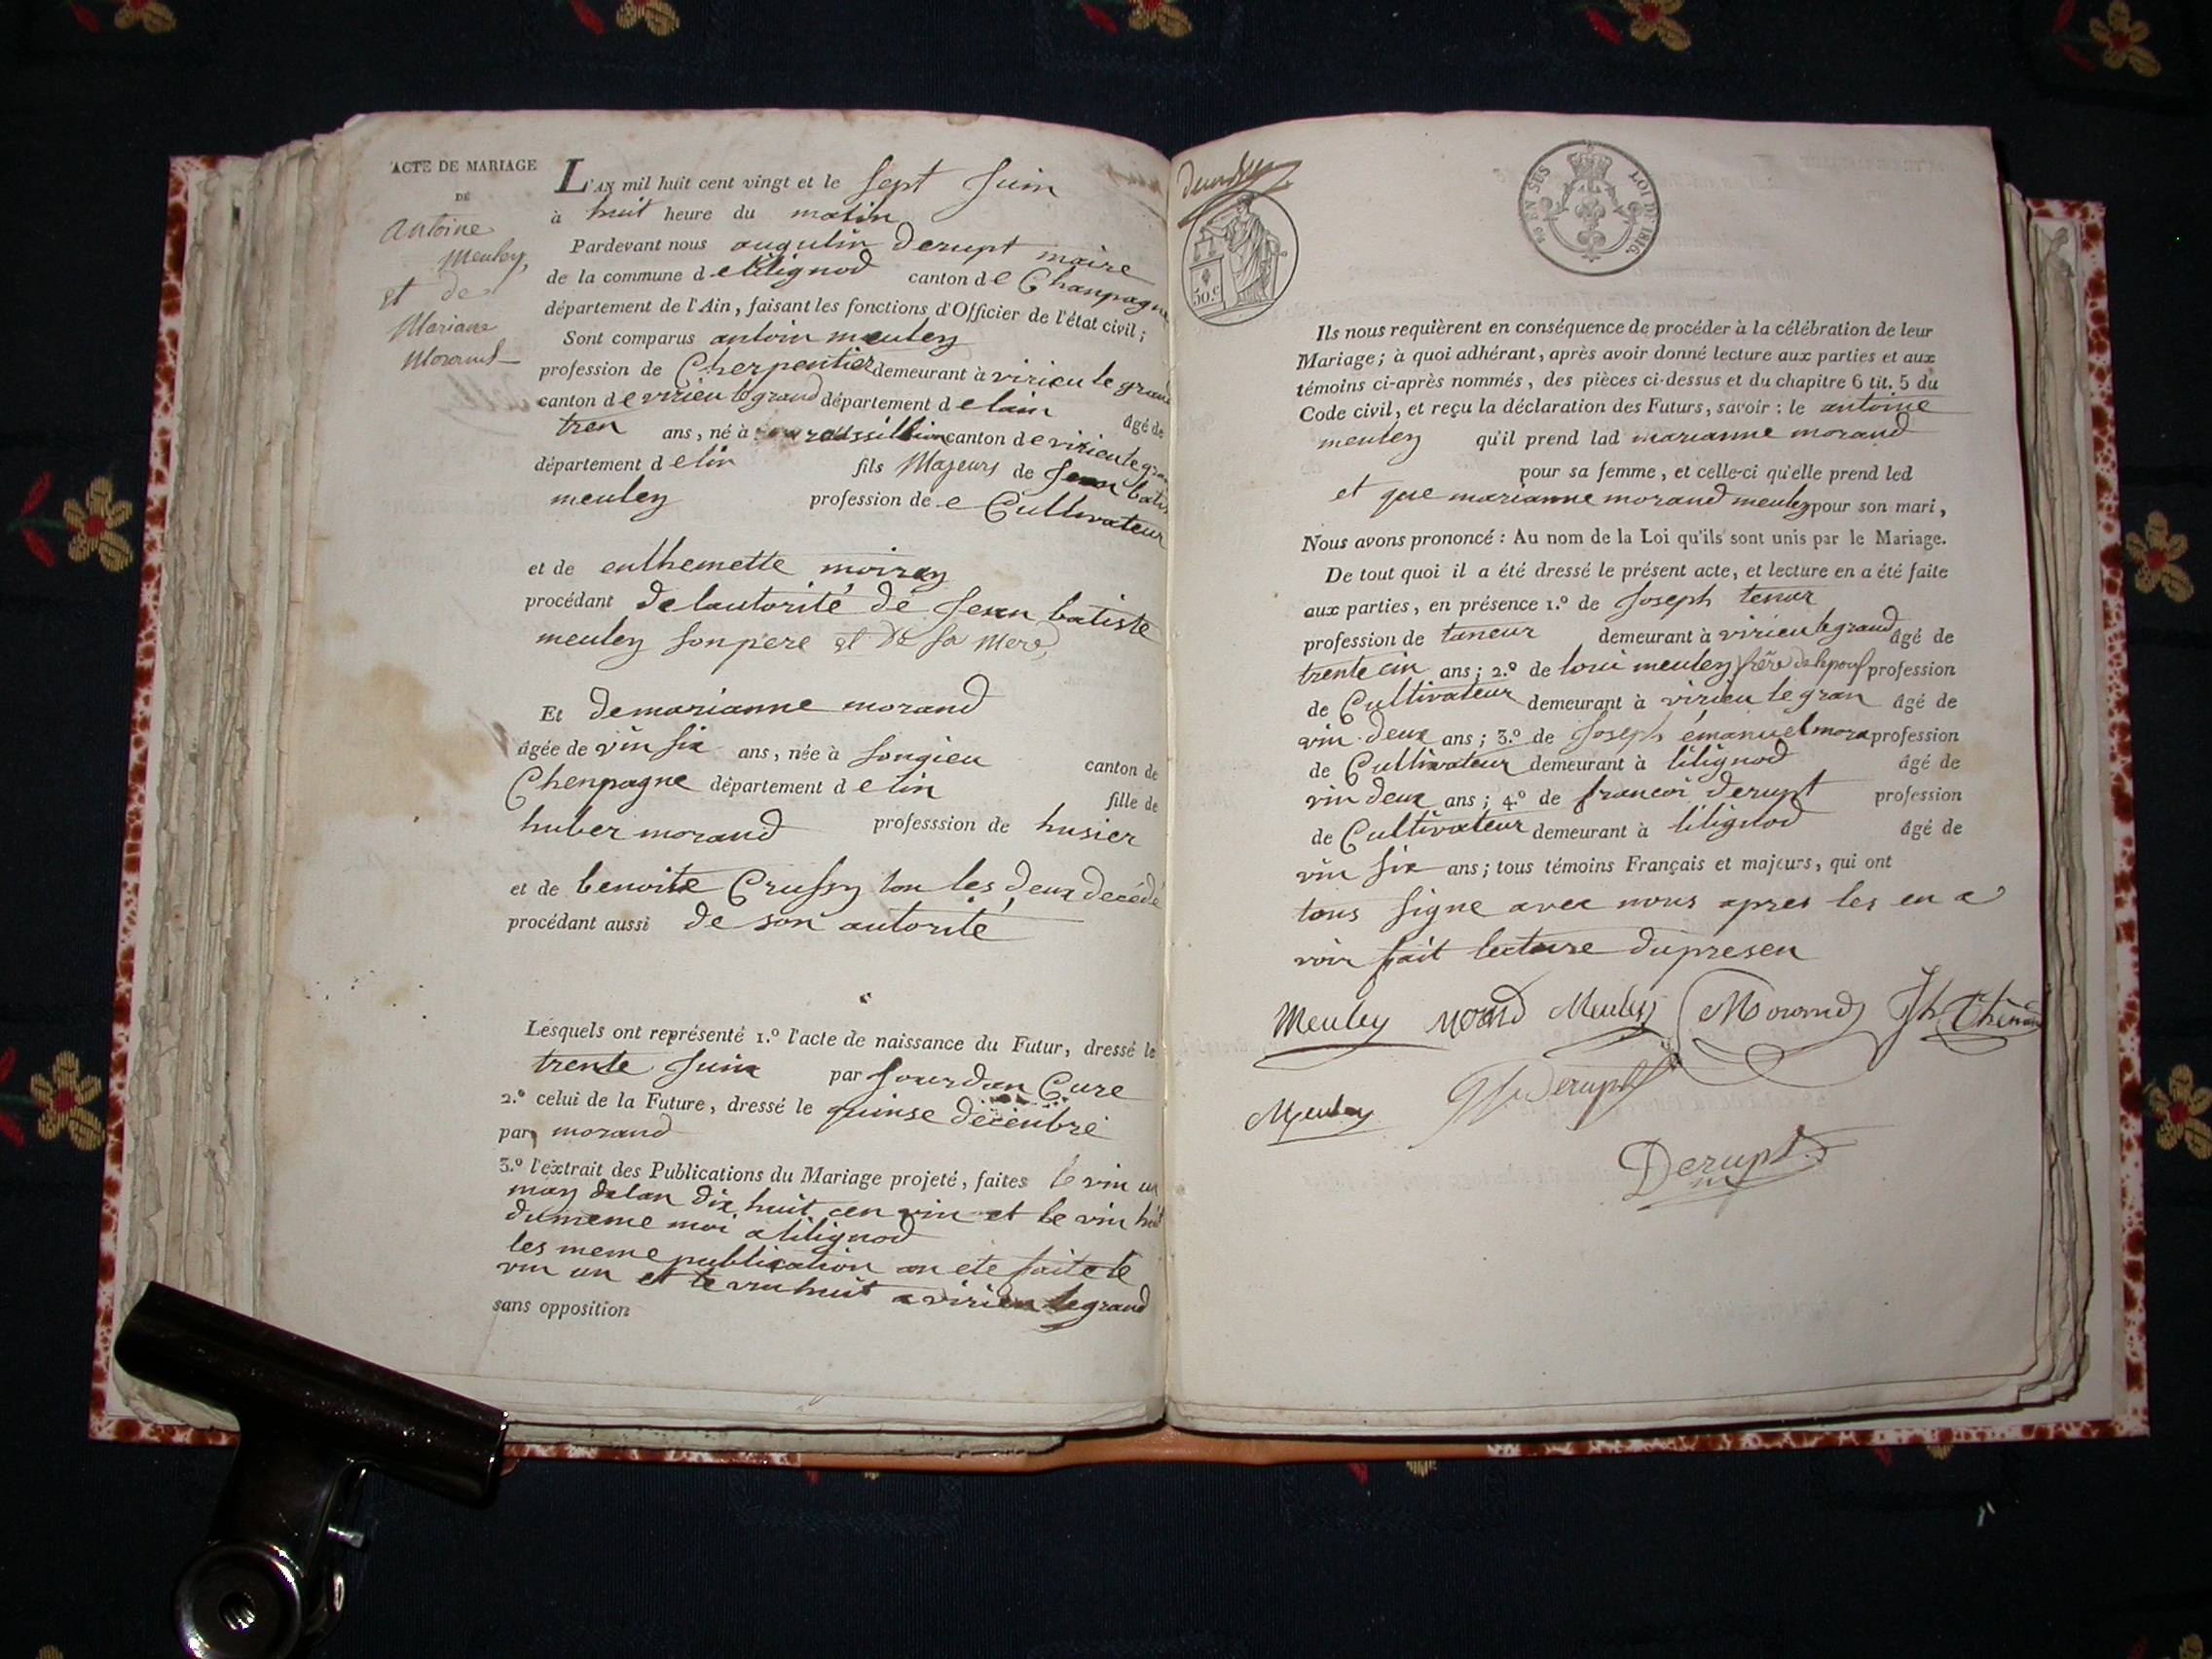 ACTE DE MARIAGE
DE
Antoine
Meuley,
et de
Mariane
Morand
L'AN mil huit cent vingt et le Sept Juin
à huit heure du matin
Pardevant nous augustin Derupt maire
de la commune d elilignod canton d e Chanpagne
département de l'Ain, faisant les fonctions d'Officier de l'état civil;
Sont comparus antoin meuley
profession de Cherpentier demeurant à virieu le grand
canton d e virieu le grand département d elain âgé de
tren ans, né à roussillion canton d e virieu le gran
département d elin fils Majeurs de Jean batis
meuley profession de e Cultivateur
et de enthemette moiray
procédant de lautorité de Jean batiste
meuley son pere et De Sa Mere,
Et demarianne morand
âgée de vin six ans, née à Songieu canton de
Chenpagne département d elin fille de
huber morand professsion de husier
et de benoite Crussy tou les deux decédé
procédant aussi de son autorité
Lesquels ont représenté 1.º l'acte de naissance du Futur, dressé le
trente Juin par Jourdan Cure
2.º celui de la Future, dressé le quinse décenbre
par morand
3.º l'extrait des Publications du Mariage projeté, faites le vin un
may delan dix huit cen vin et le vin huit
dumeme moi a lilignod
les meme publication on ete faite le
vin un et le vin huit a virieu le grand
sans opposition
50.c
50 EN SUS LOI DE 1816.
Ils nous requièrent en conséquence de procéder à la célébration de leur
Mariage; à quoi adhérant, après avoir donné lecture aux parties et aux
témoins ci-après nommés, des pièces ci-dessus et du chapitre 6 tit. 5 du
Code civil, et reçu la déclaration des Futurs, savoir: le antoine
meuley qu'il prend lad marianne morand
pour sa femme, et celle-ci qu'elle prend led
et que marianne morand meuley pour son mari,
Nous avons prononcé: Au nom de la Loi qu'ils sont unis par le Mariage.
De tout quoi il a été dressé le présent acte, et lecture en a été faite
aux parties, en présence 1.º de Joseph tenar
profession de taneur demeurant à virieu le grand âgé de
trente cin ans; 2.º de loui meuley frère de lepous profession
de Cultivateur demeurant à virieu le gran âgé de
vin deux ans; 3.º de Joseph émanuel mora profession
de Cultivateur demeurant à lilignod âgé de
vin deux ans; 4.º de francoi derupt profession
de Cultivateur demeurant à lilignod âgé de
vin six ans; tous témoins Français et majeurs, qui ont
tous signe avec nous apres les en a
voir fait lecture dupresen
Meuley Morand Meuley Morand Jh Thénard
Meuley Derupt
Derupt